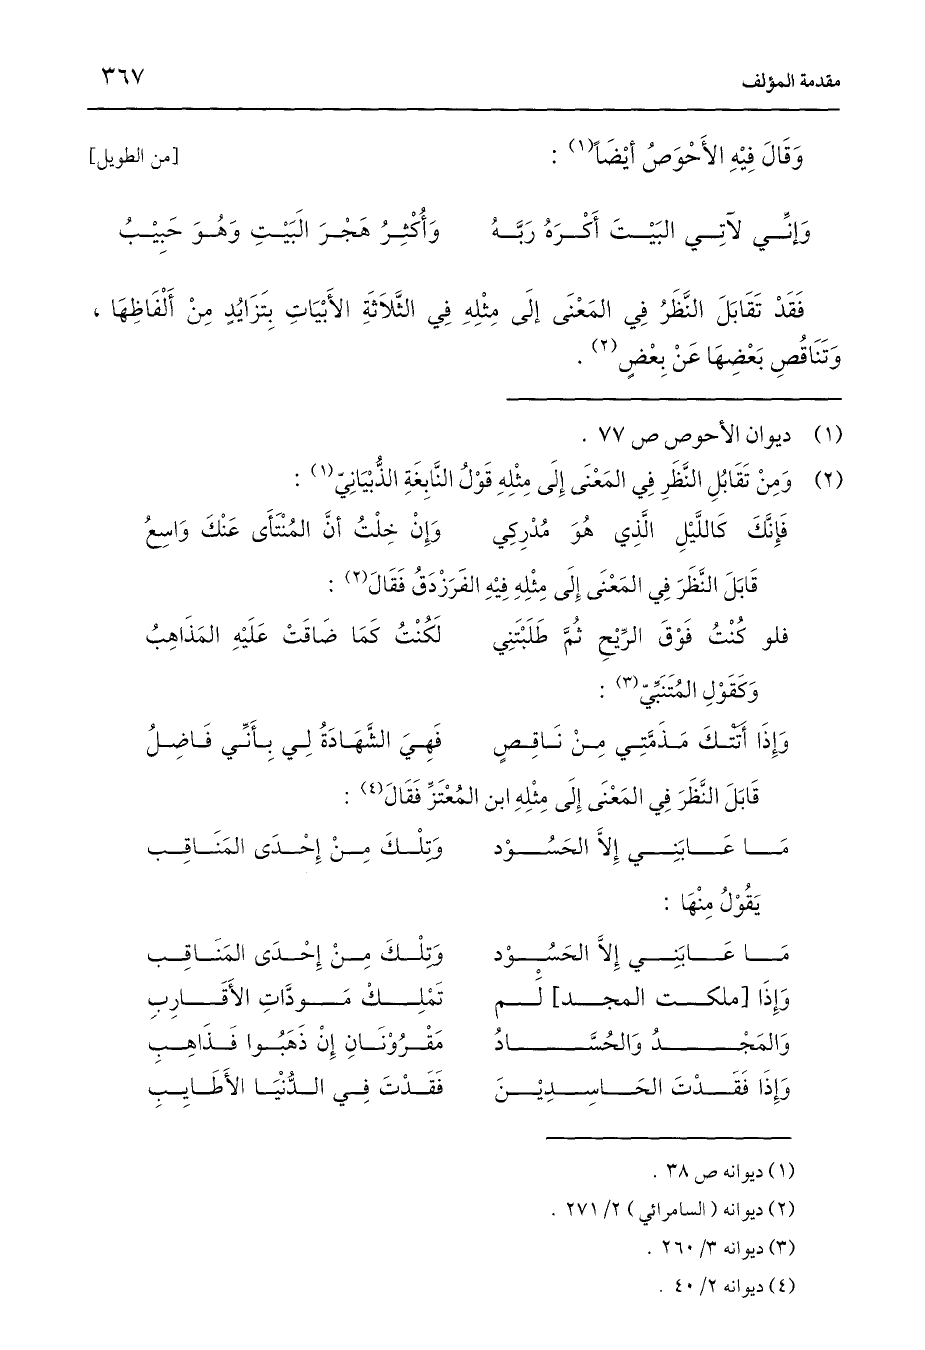 مقدمة المؤلف ٣٦٧
وَقَالَ فِيْهِ الأَحْوَصُ أَيْضَاً(١) : [من الطويل]
وَإنِّــي لآتِــي البَيْــتَ أَكْــرَهُ رَبَّــهُ وَأُكْثِــرُ هَجْــرَ البَيْــتِ وَهُــوَ حَبِيْــبُ
فَقَدْ تَقَابَلَ النَّظَرُ فِي المَعْنَى إلَى مِثْلِهِ فِي الثَّلَاثَةِ الأَبْيَاتِ بِتَزَايُدٍ مِنْ أَلْفَاظِهَا ،
وَتَنَاقُصِ بَعْضِهَا عَنْ بِعْضٍ(٢) .
(١) ديوان الأحوص ص ٧٧ .
(٢) وَمِنْ تَقَابُلِ النَّظَرِ فِي المَعْنَى إِلَى مِثْلِهِ قَوْلُ النَّابِغَةِ الذُّبْيَانِيّ(١) :
فَإِنَّكَ كَاللَّيْلِ الَّذِي هُوَ مُدْرِكِي وَإِنْ خِلْتُ أنَّ المُنْتَأَى عَنْكَ وَاسِعُ
قَابَلَ النَّظَرَ فِي المَعْنَى إِلَى مِثْلِهِ فِيْهِ الفَرَزْدَقُ فَقَالَ(٢) :
فلو كُنْتُ فَوْقَ الرِّيْحِ ثُمَّ طَلَبْتَنِي لَكُنْتُ كَمَا ضَاقَتْ عَلَيْهِ المَذَاهِبُ
وَكَقَوْلِ المُتَنَبِّيّ(٣) :
وَإِذَا أَتَتْــكَ مَــذَمَّتِــي مِــنْ نَــاقِــصٍ فَهِــيَ الشَّهَــادَةُ لِــي بِــأَنِّــي فَــاضِــلُ
قَابَلَ النَّظَرَ فِي المَعْنَى إِلَى مِثْلِهِ ابن المُعْتَزِّ فَقَالَ(٤) :
مَــا عَــابَنِــي إِلاَّ الحَسُــوْد وَتِلْــكَ مِــنْ إِحْــدَى المَنَــاقِــبِ
يَقُوْلُ مِنْهَا :
مَــا عَــابَنِــي إِلاَّ الحَسُــوْد وَتِلْــكَ مِــنْ إِحْــدَى المَنَــاقِــبِ
وَإِذَا [ملكــت المجــد] لَــم تَمْلِــكْ مَــوَدَّاتِ الأَقَــارِبِ
وَالمَجْــدُ وَالحُسَّــادُ مَقْــرُوْنَــانِ إِنْ ذَهَبُــوا فَــذَاهِــبِ
وَإِذَا فَقَــدْتَ الحَــاسِــدِيْــنَ فَقَــدْتَ فِــي الــدُّنْيَــا الأَطَــايِــبِ
(١) ديوانه ص ٣٨ .
(٢) ديوانه ( السامرائي ) ٢/ ٢٧١ .
(٣) ديوانه ٣/ ٢٦٠ .
(٤) ديوانه ٢/ ٤٠ .